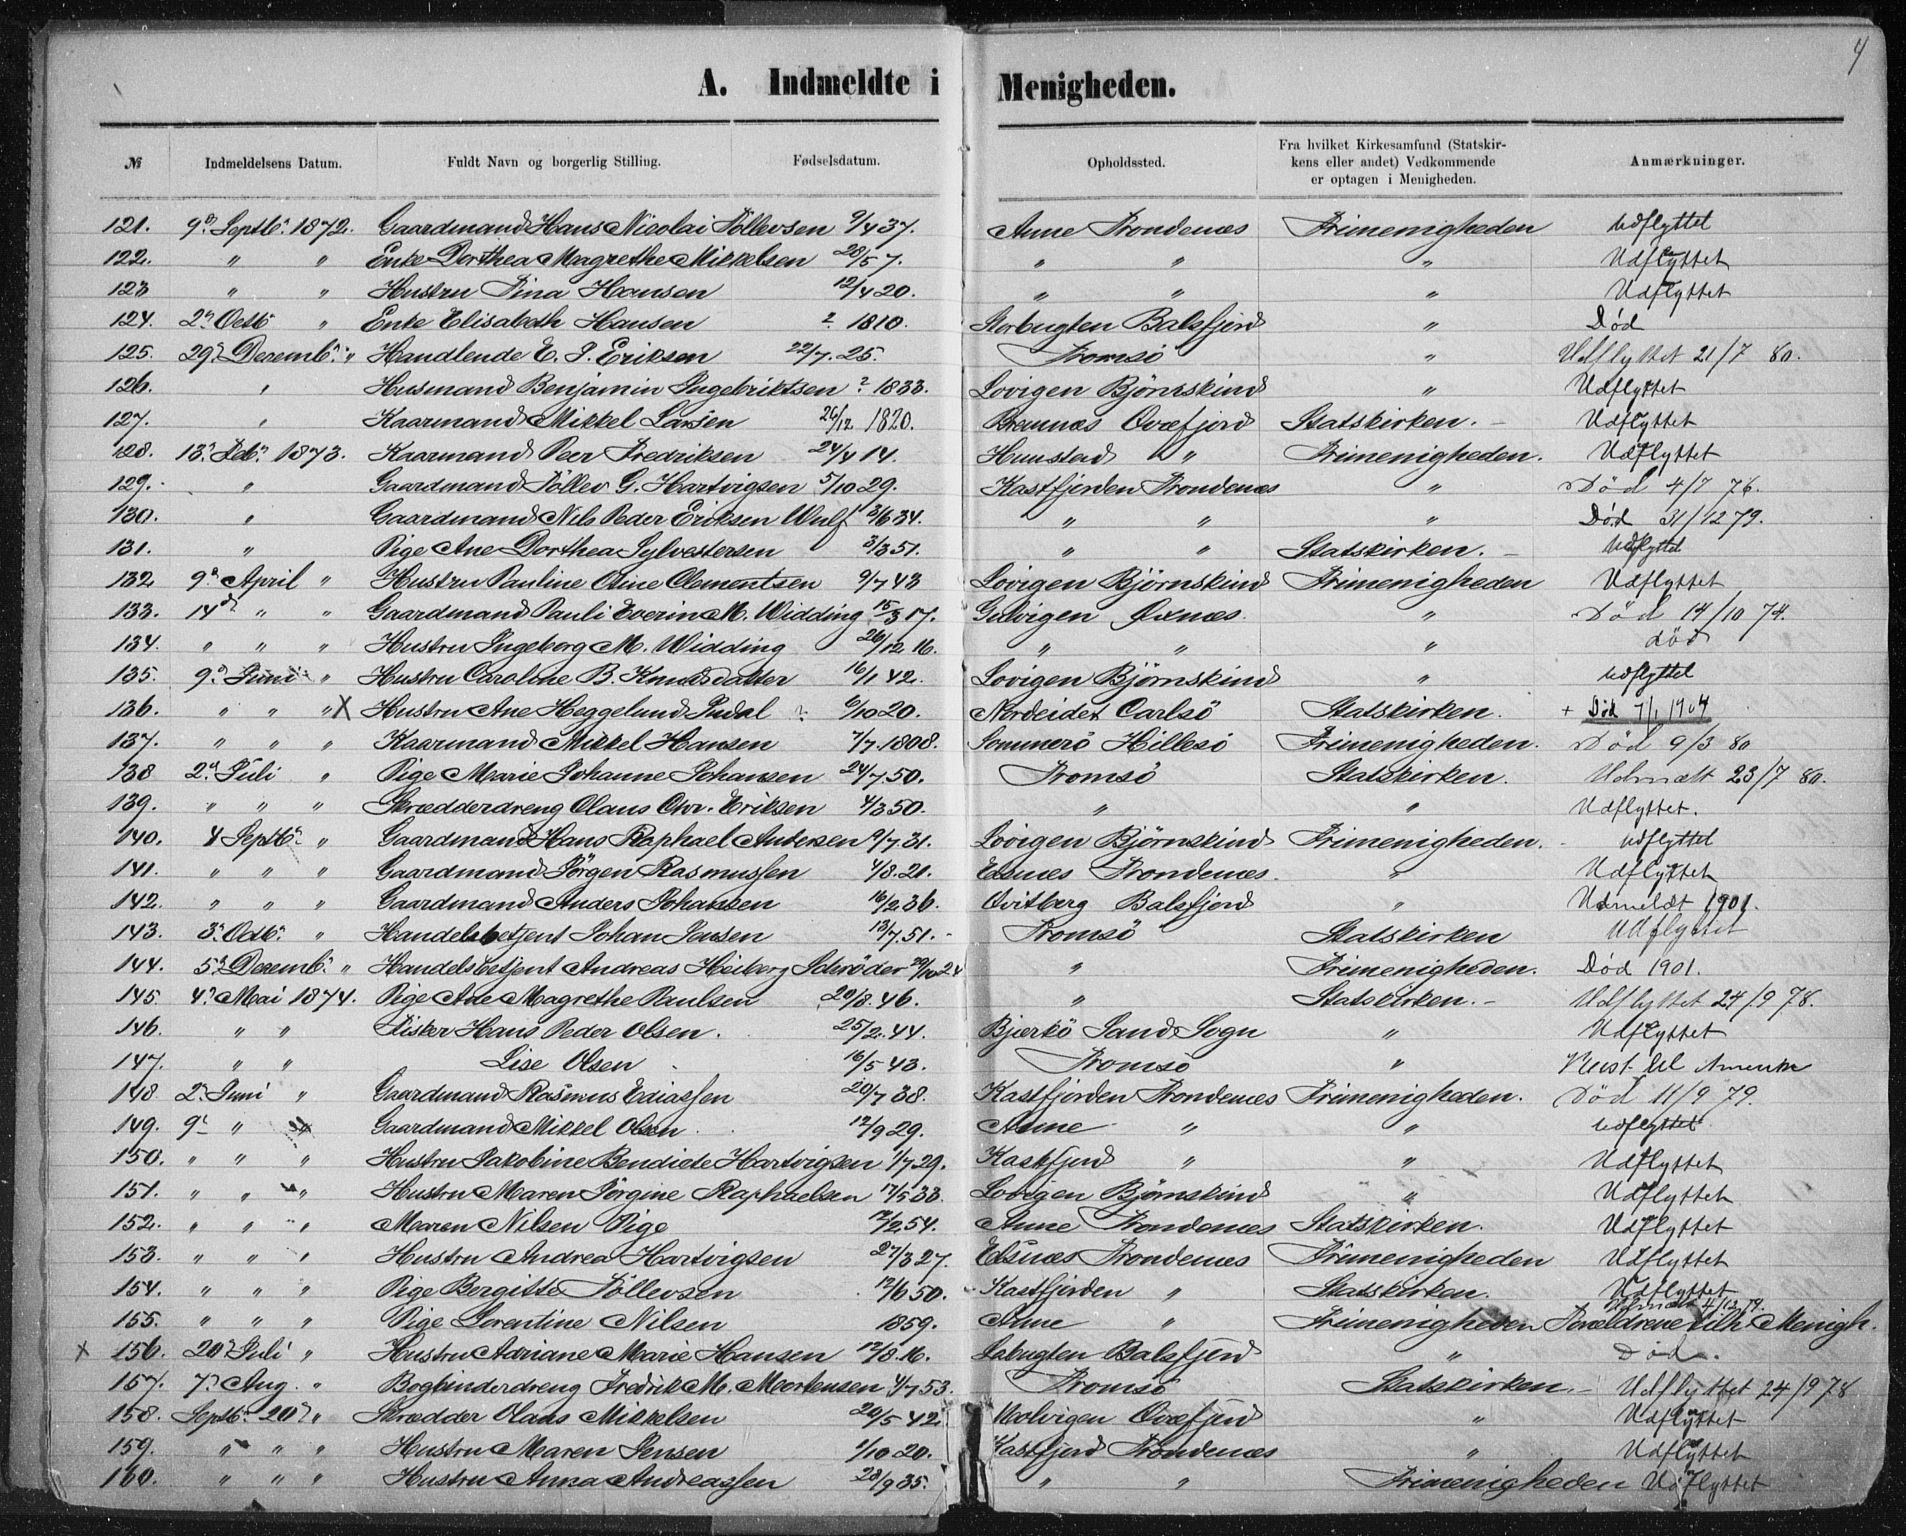 4
A. Indmeldte i Menigheden.
№ Indmeldelsens Datum. Fuldt Navn og borgerlig Stilling. Fødselsdatum. Opholdssted. Fra hvilket Kirkesamfund (Statskirkens eller andet) Vedkommende er optagen i Menigheden. Anmærkninger.
121. 9d Septb: 1872. Gaardmand Hans Nicolai Töllevsen 9/4 37. Anne Trondenæs Frimenigheden Udflyttet
122. " " Enke Dorthea Magrethe Mikkelsen 28/5 7. " " " Udflyttet
123 " " Hustru Hansen 12/4 20. " " " Udflyttet
124. 2d Octb " Enke Elisabeth Hansen ? 1810. Storbugten Balsfjord " Död
125. 29d Decemb: " Handlende E. P. Eriksen 22/7 25. Tromsö " Udflyttet 21/7 80.
126. " Husmand Benjamin Ingebriktsen ? 1833. Lovigen Björnskind " Udflyttet
127. " Kaarmand Mikkel Larsen 26/12 1820. Ovæfjord Statskirken. Udflyttet
128. 13d Feb: 1873. Kaarmand Peer Fredriksen 24/4 14. Hunstad " Frimenigheden. Udflyttet
129. " Gaardmand Töllev G. Hartvigsen 5/10 29. Kastfjorden Trondenæs " Död 4/7 76.
130. " Gaardmand Nils Peder Eriksen Wulf 3/6 34. " " " Död 31/12 79.
131. " Pige Ane Dorthea Sylvestersen 3/3 51. " " Statskirken. Udflyttet
132 9d April " Hustru Pauline Oline Clementsen 9/7 43 Lovigen Björnskind Frimenigheden Udflyttet
133. 14d " " Gaardmand Pauli Everin M. Widding 15/3 17. Gulvigen Öxnæs. " Död 14/10 74.
134. " " " Hustru Ingeborg M. Widding 26/12 16. " " " död
135. 9d Juni " Hustru Caroline B. Knudsdatter 16/1 42. Lovigen Björnskind " Udflyttet
136. " " " X Hustru Ane Heggelund Indal ? 6/10 20. Nordeidet Carlsö Statskirken. + Död 7/1 1904
137. " " " Kaarmand Mikkel Hansen 7/7. 1808. Sommerö Hillesö Frimenigheden. Död 9/3 80
138 2d Juli " Pige Marie Johanne Johansen 24/7 50. Tromsö Statskirken. Udmeldt 23/7 80.
139. " " " Skrædderdreng Olaus Chr. Eriksen 4/3 50. " " Udflyttet.
140. 4 Septb: " Gaardmand Hans Raphael Andersen 9/7 31. Lovigen Björnskind Frimenigheden. Udflyttet
141. " " " Gaardmand Jörgen Rasmussen 4/8. 21. Elsnæs Trondenæs. " Udflyttet
142. " " " Gaardmand Anders Johansen 16/2 36. Qvitberg Balsfjord " Udmeldt 1901.
143. 3d Octb: " Handelsbetjent Johan Jensen 13/7. 51. Tromsö Statskirken Udflyttet
144. 5d Decemb: " Handelsbetjent Andreas Heiberg Schröder 29/10 24 " Frimenigheden. Död 1901.
145. 4d Mai 1874. Pige Ane Magrethe Paulsen 20/8. 46. " Statskirken. Udflyttet 24/9 78.
146. " " Fisker Hans Peder Olsen. 25/2. 44. Bjerkö Sands Sogn " Udflyttet
147. " " Lise Olsen 16/5 43. Tromsö " Reist til Amerika
148 2d Juni " Gaardmand Rasmus Ediassen 20/7 38. Kastfjorden Trondenæs Frimenigheden. Död 11/9 79.
149. 9d " " Gaardmand Mikkel Olsen 12/9 29. Anne " " Udflyttet
150. " " " Hustru Jakobine Bendicte Hartvigsen 1/7 29. Kastfjord " " Udflyttet
151. " " " Hustru Maren Jörgine Raphaelsen 17/5 33. Lovigen Björnskind " Udflyttet
152. " " " Maren Nilsen Pige 12/2 54. Anne Trondenæs Statskirken. Udflyttet
153. " " " Hustru Andrea Hartvigsen 27/3 27. Elsnæs Trondenæs Frimenigheden Udflyttet
154. " " " Pige Bergitte Töllevsen 12/6 50. Kastfjorden " Statskirken. Udflyttet
155. " " " Pige Lorentine Nilsen 1859. Anne " Frimenigheden Udmeldt 4/12 79. Forældrene tilh. Menigh.
X 156. 20d Juli " Hustru Adriane Marie Hansen 12/8. 16. Balsfjord " Död.
157. 7d Aug. " Bogbinderdreng Fredrik M. Mortensen 4/7 53. Tromsö Statskirken. Udflyttet 24/9 78
158. Septb: 20d " Skrædder Olaus Mikkelsen 20/5 42. Ovæfjord " Udflyttet
159. " " " Hustru Maren Jensen 1/10 20. Kastfjord Trondenæs " Udflyttet
160. " " " Hustru Anna Andreassen 28/9 35. " " Frimenigheden Udflyttet